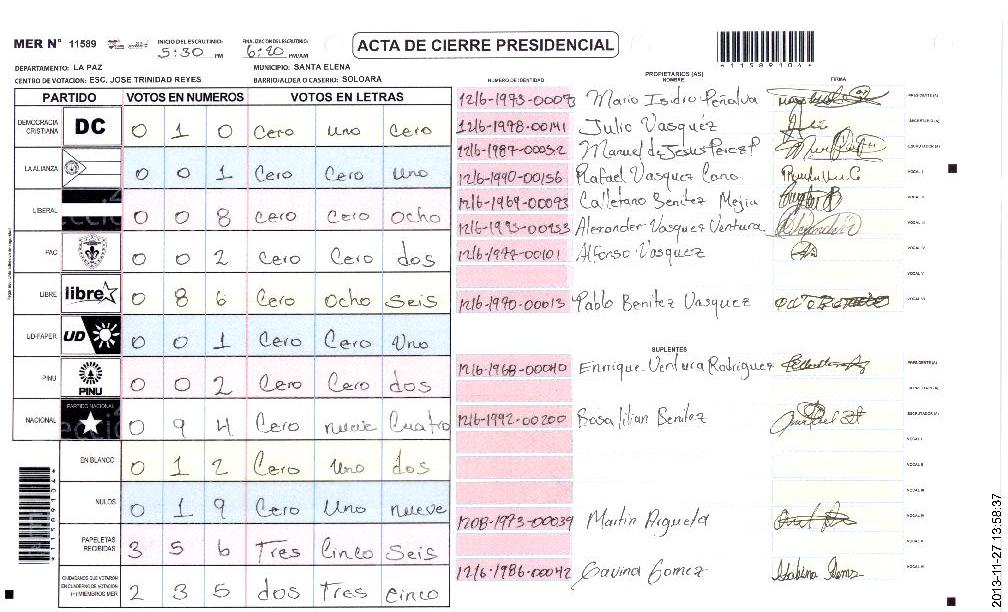 MER Nº 11589
INICIO DEL ESCRUTINIO: 5:30 PM
FINALIZACION DEL ESCRUTINIO: 6:20 PM/AM
ACTA DE CIERRE PRESIDENCIAL
115891044
DEPARTAMENTO: LA PAZ
MUNICIPIO: SANTA ELENA
CENTRO DE VOTACION: ESC. JOSE TRINIDAD REYES
BARRIO/ALDEA O CASERIO: SOLOARA
NUMERO DE IDENTIDAD
PROPIETARIOS (AS)
NOMBRE
FIRMA
PARTIDO VOTOS EN NUMEROS VOTOS EN LETRAS
DEMOCRACIA CRISTIANA DC 0 1 0 Cero uno Cero
LA ALIANZA 0 0 1 Cero Cero uno
LIBERAL 0 0 8 Cero Cero ocho
PAC 0 0 2 Cero Cero dos
LIBRE libre 0 8 6 Cero Ocho Seis
UD-FAPER UD 0 0 1 Cero Cero Uno
PINU PINU 0 0 2 Cero Cero dos
NACIONAL PARTIDO NACIONAL 0 9 4 Cero nueve Cuatro
EN BLANCO 0 1 2 Cero Uno dos
NULOS 0 1 9 Cero Uno nueve
PAPELETAS RECIBIDAS 3 5 6 Tres Cinco Seis
CIUDADANOS QUE VOTARON EN CUADERNO DE VOTACION (+) MIEMBROS MER 2 3 5 dos Tres Cinco
1216-1973-00073 Mario Isidro Peñalva PRESIDENTE (A)
1216-1978-00141 Julio Vasquéz SECRETARIO (A)
1216-1987-00052 Manuel de Jesus Perez P ESCRUTADOR (A)
1216-1990-00156 Rafael Vasquez Cano VOCAL I
1216-1969-00093 Calletano Benitez Mejia VOCAL II
1216-1993-00153 Alexander Vasquez Ventura VOCAL III
1216-1977-00101 Alfonso Vasquez VOCAL IV
VOCAL V
1216-1970-00013 Pablo Benitez Vasquez VOCAL VI
SUPLENTES
1216-1968-00040 Enrrique Ventura Rodriguez PRESIDENTE (A)
SECRETARIO (A)
1216-1992-00200 Rosa lilian Benitez ESCRUTADOR (A)
VOCAL I
VOCAL II
VOCAL III
1208-1973-00039 Martin Argueta VOCAL IV
VOCAL V
1216-1986-00042 Gavina Gomez VOCAL VI
115891044
2013-11-27 13:58:37